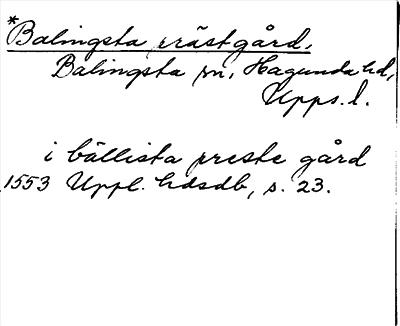 *Balingsta prästgård.
Balingsta sn, Hagunda hd,
Upps. l.
i bällista preste gård
1553 Uppl. hdsdb, s. 23.